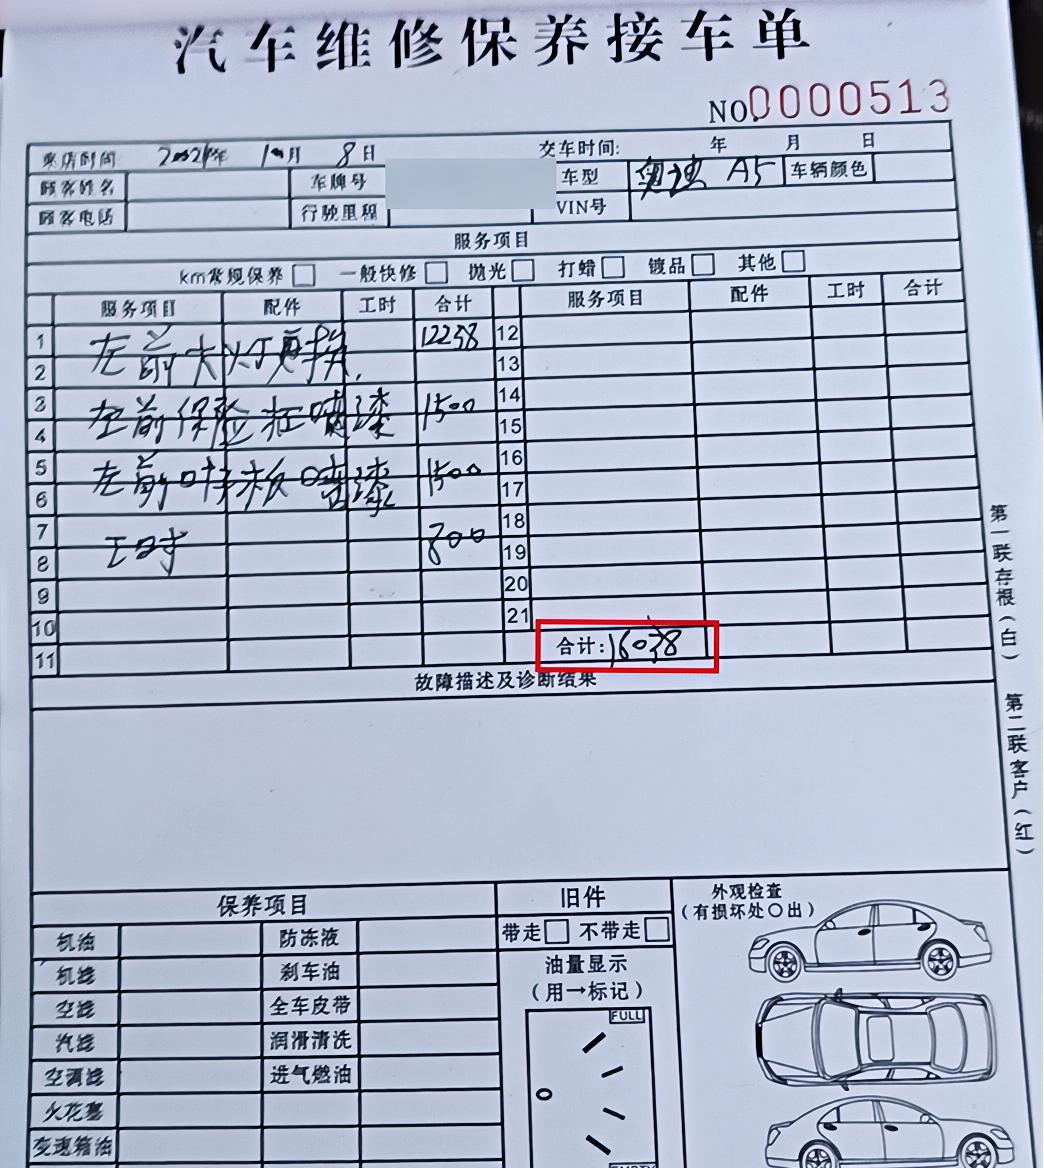 汽车维修保养接车单
NO.0000513
来店时间 2024年 10月 8日 交车时间: 年 月 日
顾客姓名 车牌号 车型 奥迪 A5 车辆颜色
顾客电话 行驶里程 VIN号
服务项目
km常规保养 一般快修 抛光 打蜡 镀品 其他
服务项目 配件 工时 合计 服务项目 配件 工时 合计
1 左前大灯更换. 12238 12
2 13
3 左前保险杠喷漆 1500 14
4 15
5 左前叶子板喷漆 1500 16
6 17
7 工时 800 18
8 19
9 20
10 21
11 合计: 16038
故障描述及诊断结果
第一联存根(白)
第二联客户(红)
保养项目 旧件 外观检查
(有损坏处○出)
机油 防冻液 带走 不带走
机滤 刹车油 油量显示
空滤 全车皮带 (用→标记)
汽滤 润滑清洗 FULL
空调滤 进气燃油
火花塞
变速箱油
EMPTY